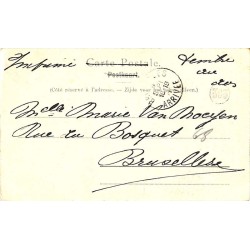 Imprimé
Carte Postale.
Timbre
Postkaart.
au
dos
(Côté réservé à l'adresse. - Zijde voor
ARRIVÉE
Melle Marie Van
Rue du Bosquet 68
Bruxelles